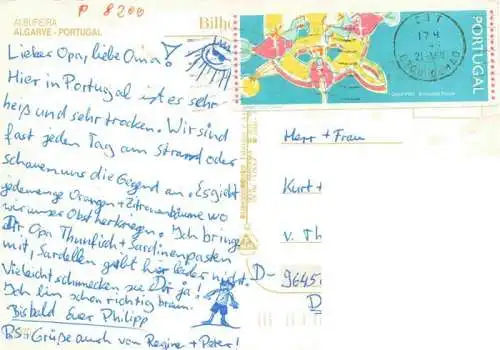 P 8200
ALBUFEIRA
ALGARVE - PORTUGAL
Bilhe
Lieber Opa, liebe Oma!
Hier in Portugal ist es sehr
heiß und sehr trocken. Wir sind
fast jeden Tag am Strand oder
schauen uns die Gegend an. Es gibt
jedemenge Orangen + Zitronenbäume wo
wir unser Obst herkriegen. Ich bring
Dir Opa Thunfisch + Sardinenpasten
mit, Sardellen gibt hier leider nicht.
Vieleicht schmecken sie Dir ja!
Ich bin schon richtig braun.
Bis bald Euer Philipp
P.S: Grüße auch von Regine + Peter!
PORTUGAL
Herr + Frau
Kurt +
v. Th
D- 9645
D